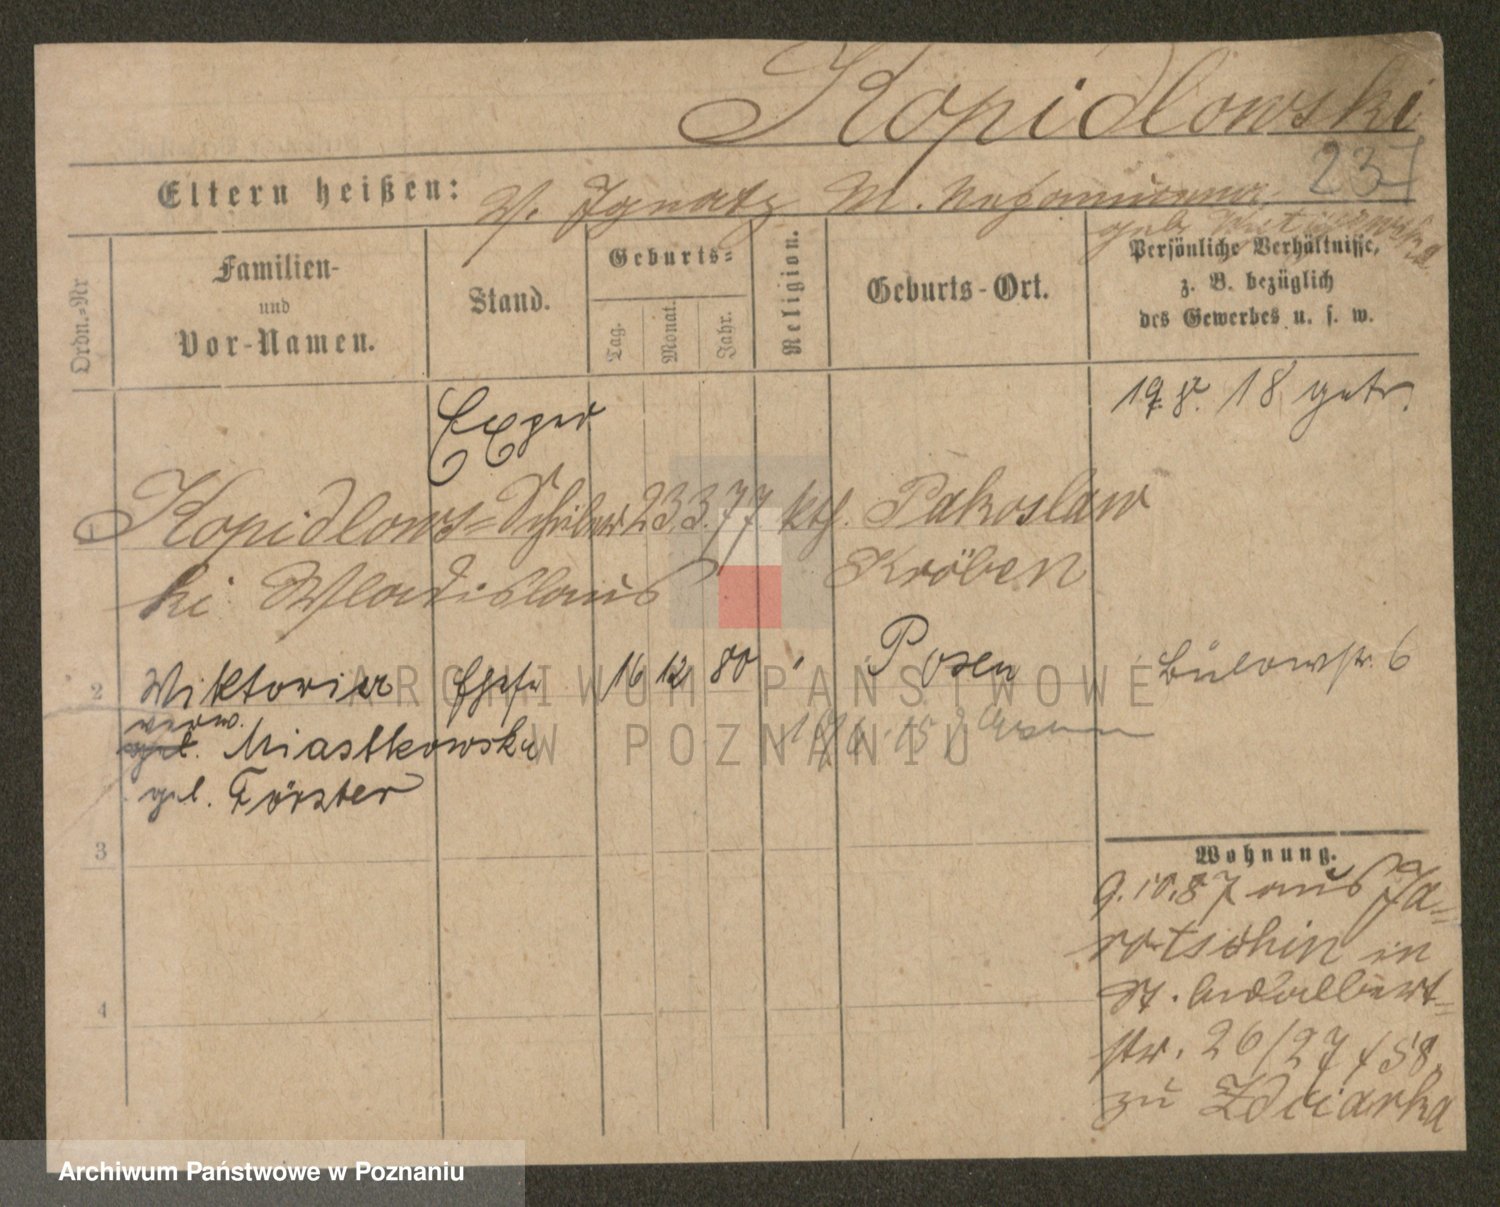 Kopidlowski
237
Eltern heißen: V. Ignatz M. Nepomucena
geb.
Ordn.-Nr
Familien-
und
Vor-Namen.
Stand.
Geburts-
Tag.
Monat.
Jahr.
Religion.
Geburts-Ort.
Persönliche Verhältnisse,
z. B. bezüglich
des Gewerbes u. s. w.
19. 8. 18 getr.
1 Kopidlows= Schreiber 23 3. 77 kth. Pakoslaw
ki Wladislaus Kröben
2 Wiktoria Ehefr 16 12 80 Posen Bülowstr. 6
verw.
geb. Miastkowska
geb. Förster
3
4
Wohnung.
9.10.87 aus Ja=
rotschin in
St. Adalbert=
str. 26/27
zu
ARCHIWUM PAŃSTWOWE
W POZNANIU
Archiwum Państwowe w Poznaniu